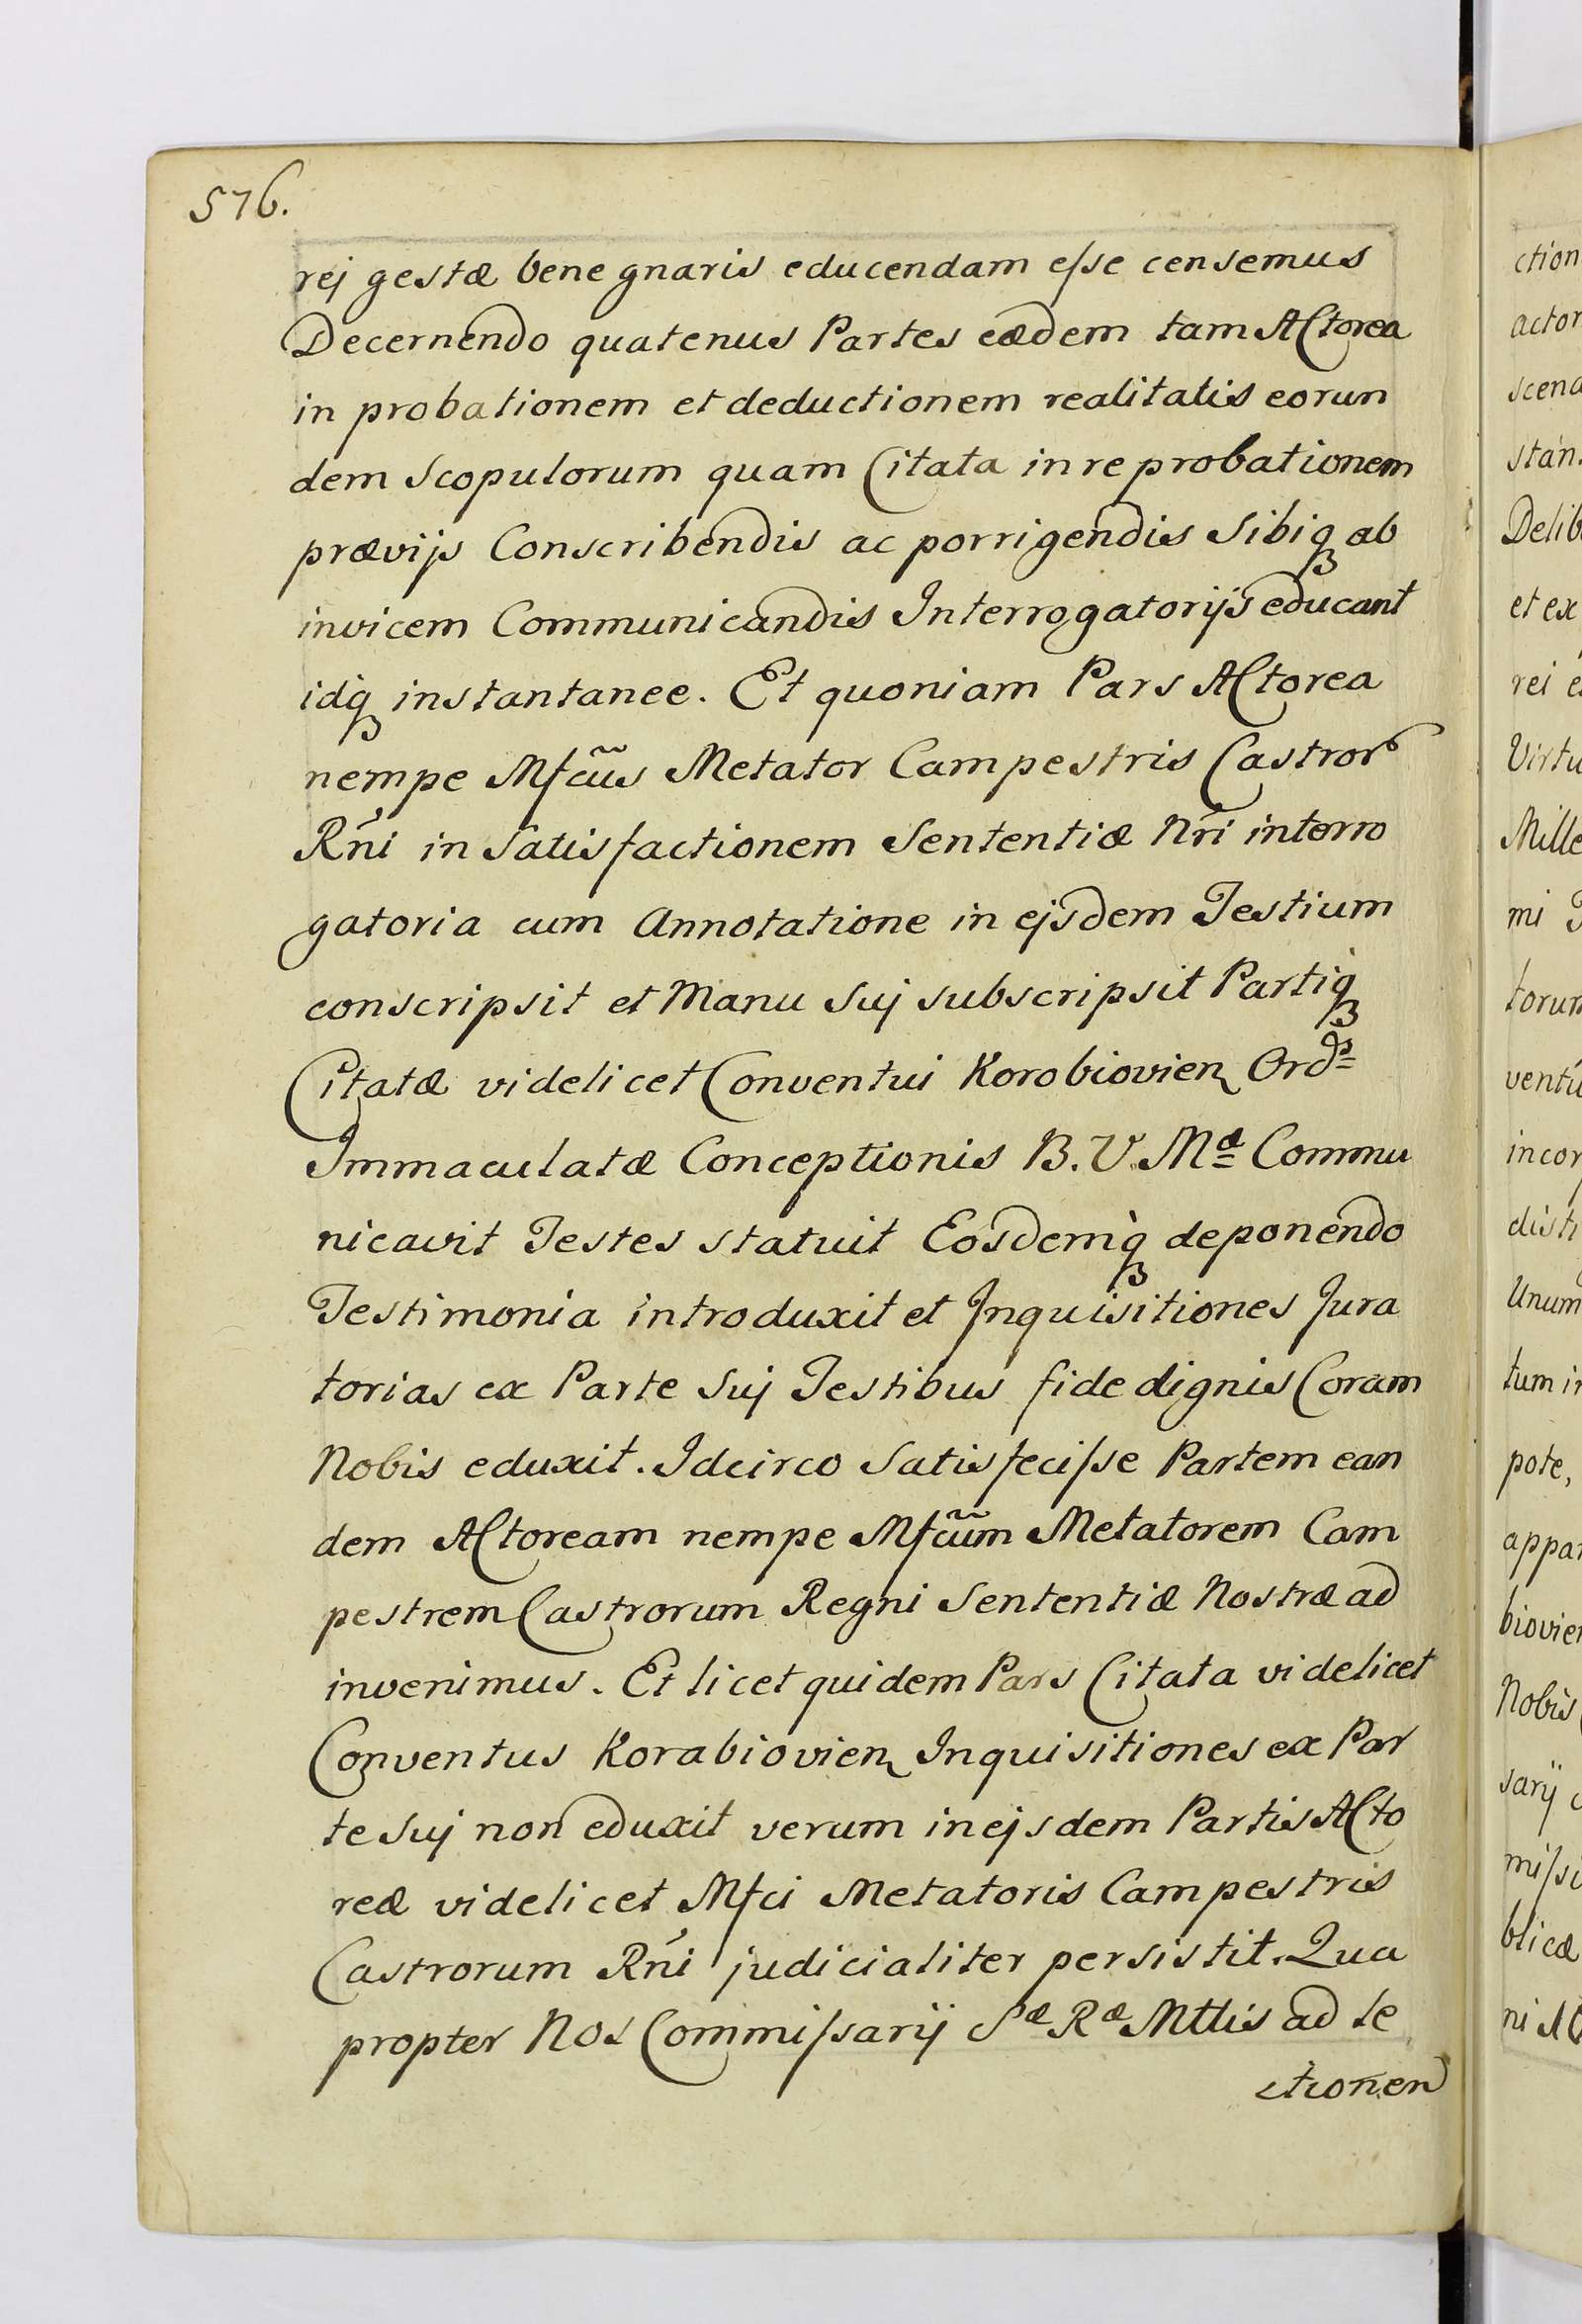 576.
rej gestæ bene gnaris educendam eſse censemus
Decernendo quatenus Partes eædem tam Actorea
in probationem et deductionem realitatis eorun
dem Scopulorum quam Citata in reprobationem
prævijs Conscribendis ac porrigendis Sibiqꝫ ab
invicem Communicandis Interrogatorijs educant
idqꝫ instantanee. Et quoniam Pars Actorea
nempe Mfcũs Metator Campestris Castror
Rńi in Satisfactionem Sententiæ Nri interro
gatoria cum Annotatione in ejsdem Testium
conscripsit et Manu Suj subscripsit Partiqꝫ
Citatæ videlicet Conventui Korobiovien Ordis
Immaculatæ Conceptionis B. V. Mæ Commu
nicavit Testes statuit Eosdemqꝫ deponendo
Testimonia introduxit et Inquisitiones Jura
torias ex Parte Suj Testibus fide dignis Coram
Nobis eduxit. Idcirco Satisfeciſse Partem ean
dem Actoream nempe Mfcũm Metatorem Cam
pestrem Castrorum Regni Sententiæ Nostræ ad
invenimus. Et licet quidem Pars Citata videlicet
Conventus Korabiovien Inquisitiones ex Par
te Suj non eduxit verum in ejsdem Partis Acto
reæ videlicet Mfci Metatoris Campestris
Castrorum Rńi judicialiter persistit. Qua
propter Nos Commiſsarij Sæ Ræ Mttis ad le
ctionen
ction
actor
scena
stan
Delib
et ex
rei e
Virtu
Mille
mi
torum
ventu
incor
disti
Unum
tum in
pote,
appar
biovien
Nobis
sarij
miſsi
blicæ
ni